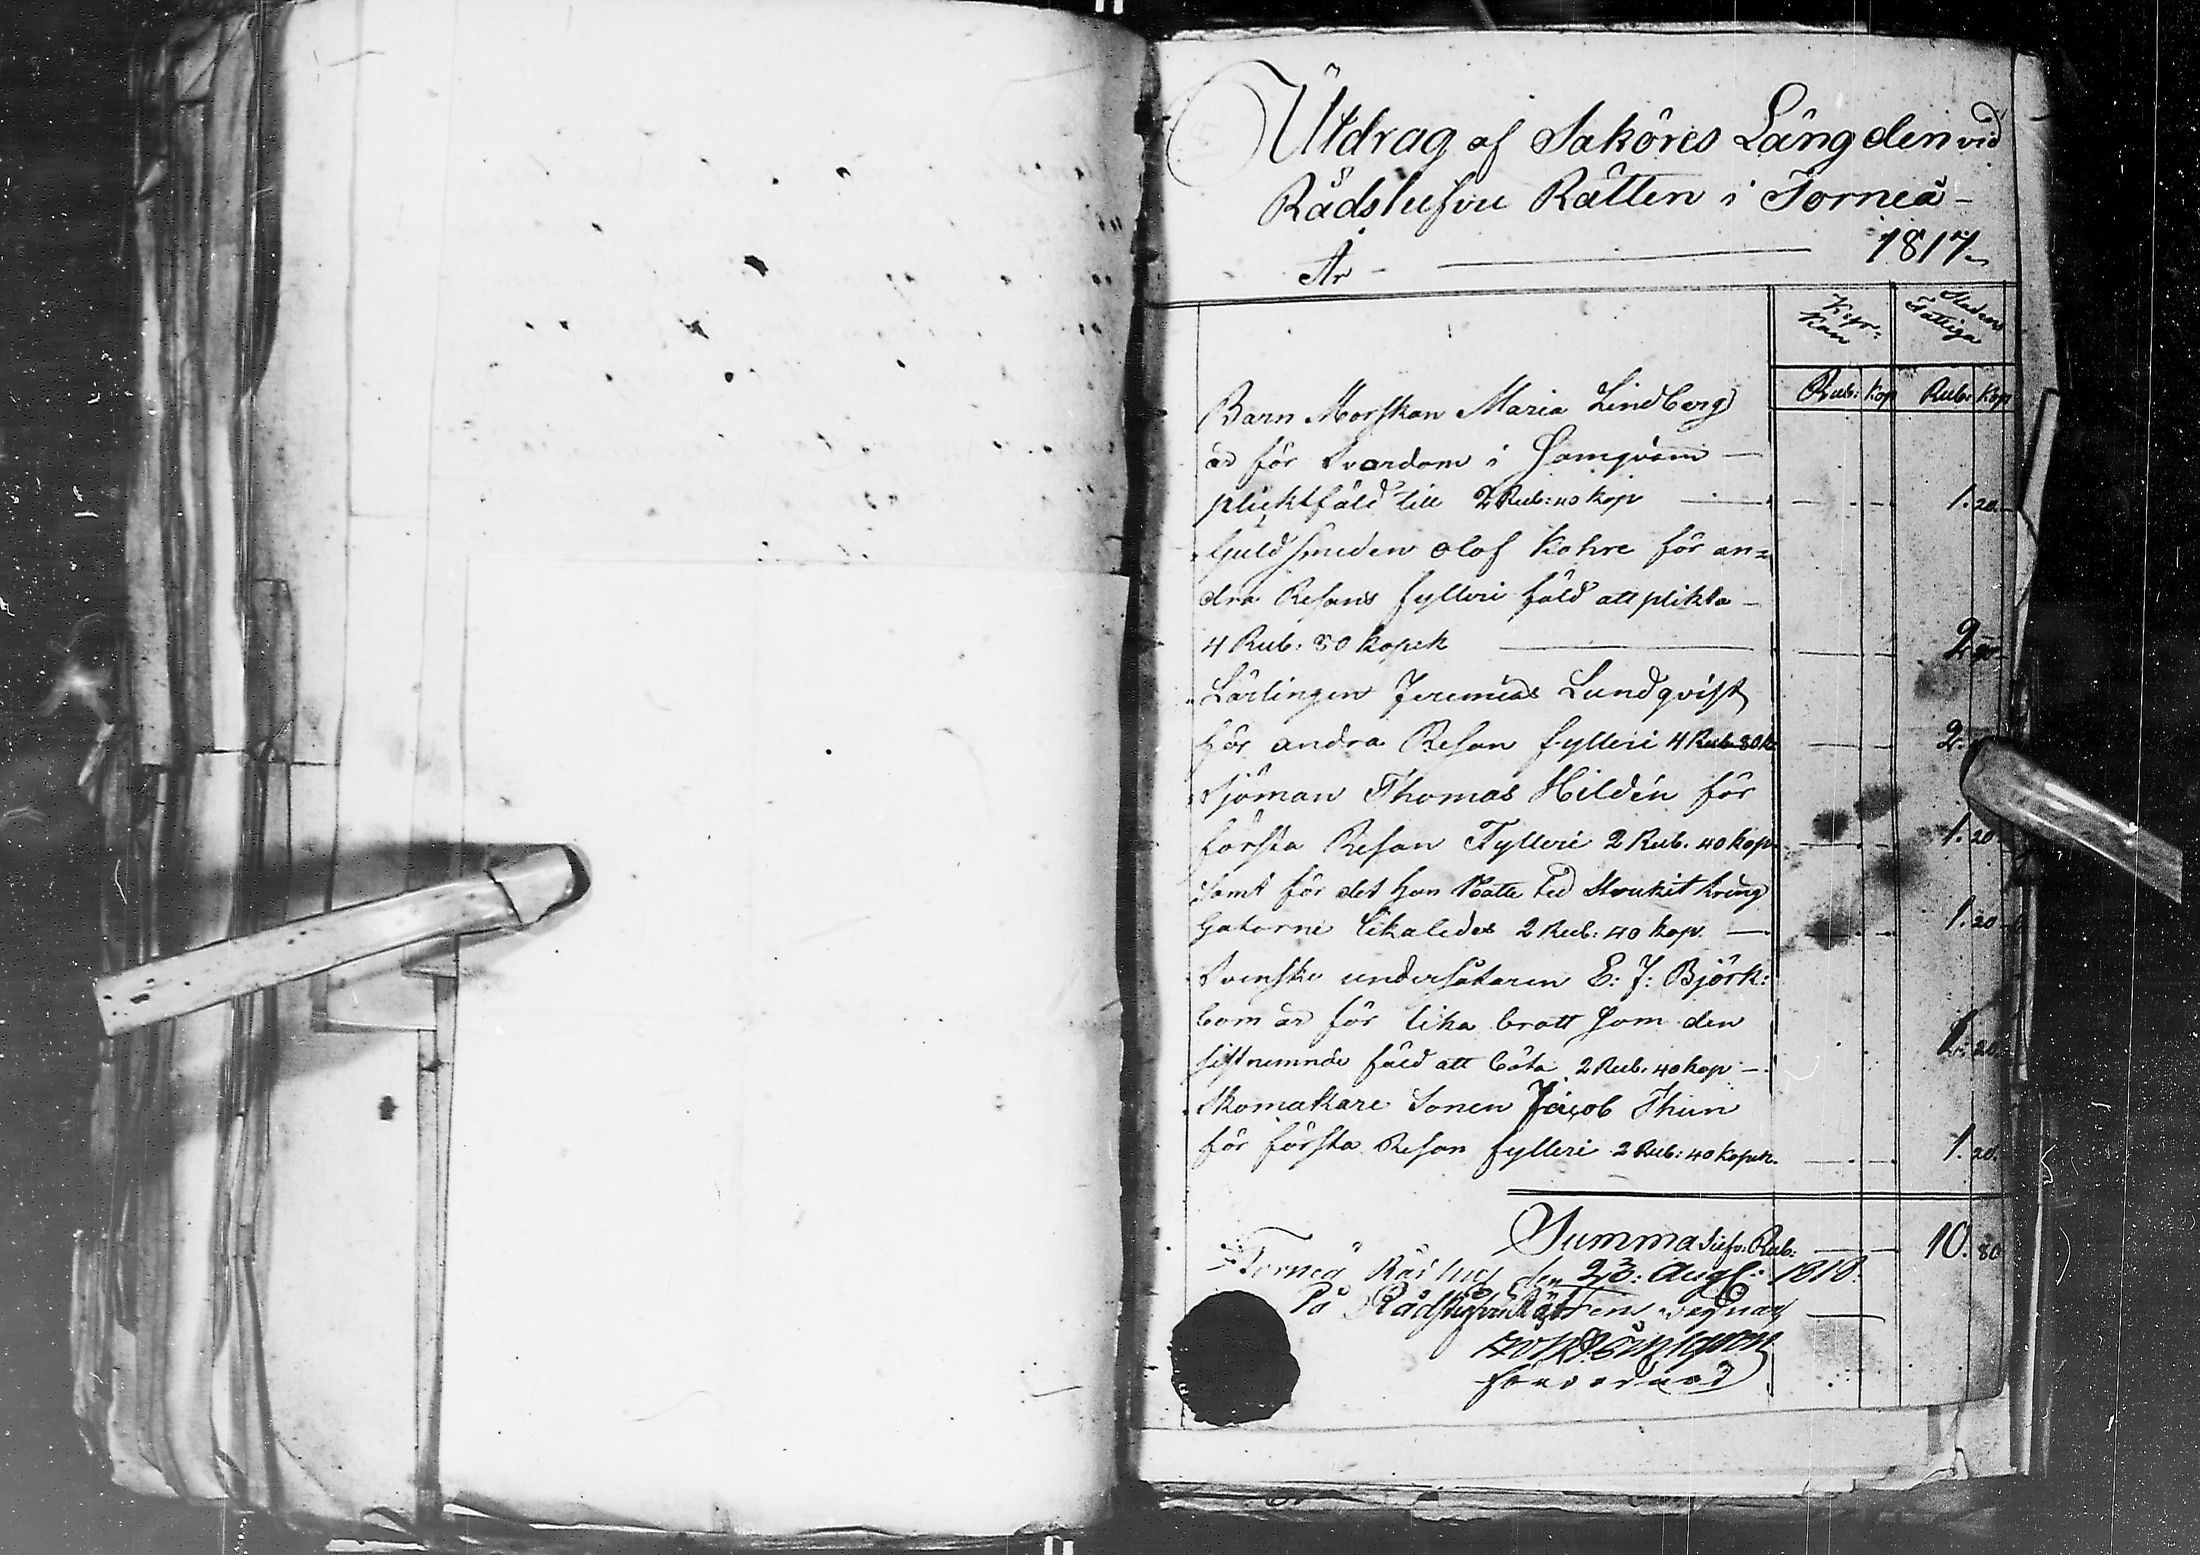 Utdrag af Saköres Längden vid
Rådshusu Rätten i Torneå
År 1817
Kyr-
kan
Stadens
Fattiga
Rub: Kop Rub: Kop
Barn Morskan Maria Lindberg
är för Svordom i Samqväm
plicktfäld till 2 Rub: 40 Kop 1. 20.
Guldsmeden Olof Kohre för an=
dra Resans fylleri fäld att plikta
4 Rub: 80 Kopek 2.
Lärlingen Jeremias Lundqvist
för andra Resan fylleri 4 Rub. 80 k. 2.
Sjöman Thomas Hildén för
första Resan Fylleri 2 Rub. 40 Kop. 1. 20.
samt för det han Natte tid Strukit kring
Gatorne likaledes 2 Rub: 40 Kop. 1. 20
Svenske undersåtaren E: J: Björk:
bom är för lika brott som den
sistnemnde fäld att böta 2 Rub. 40 Kop 1. 20.
Skomakare Sonen Jacob Thun
för första Resan fylleri 2 Rub: 40 Kopek. 1. 20.
Summa Silfv: Rub: 10. 80
Torneå Rådhus den 23: Aug: 1818.
På RådhusuRättens vegnar